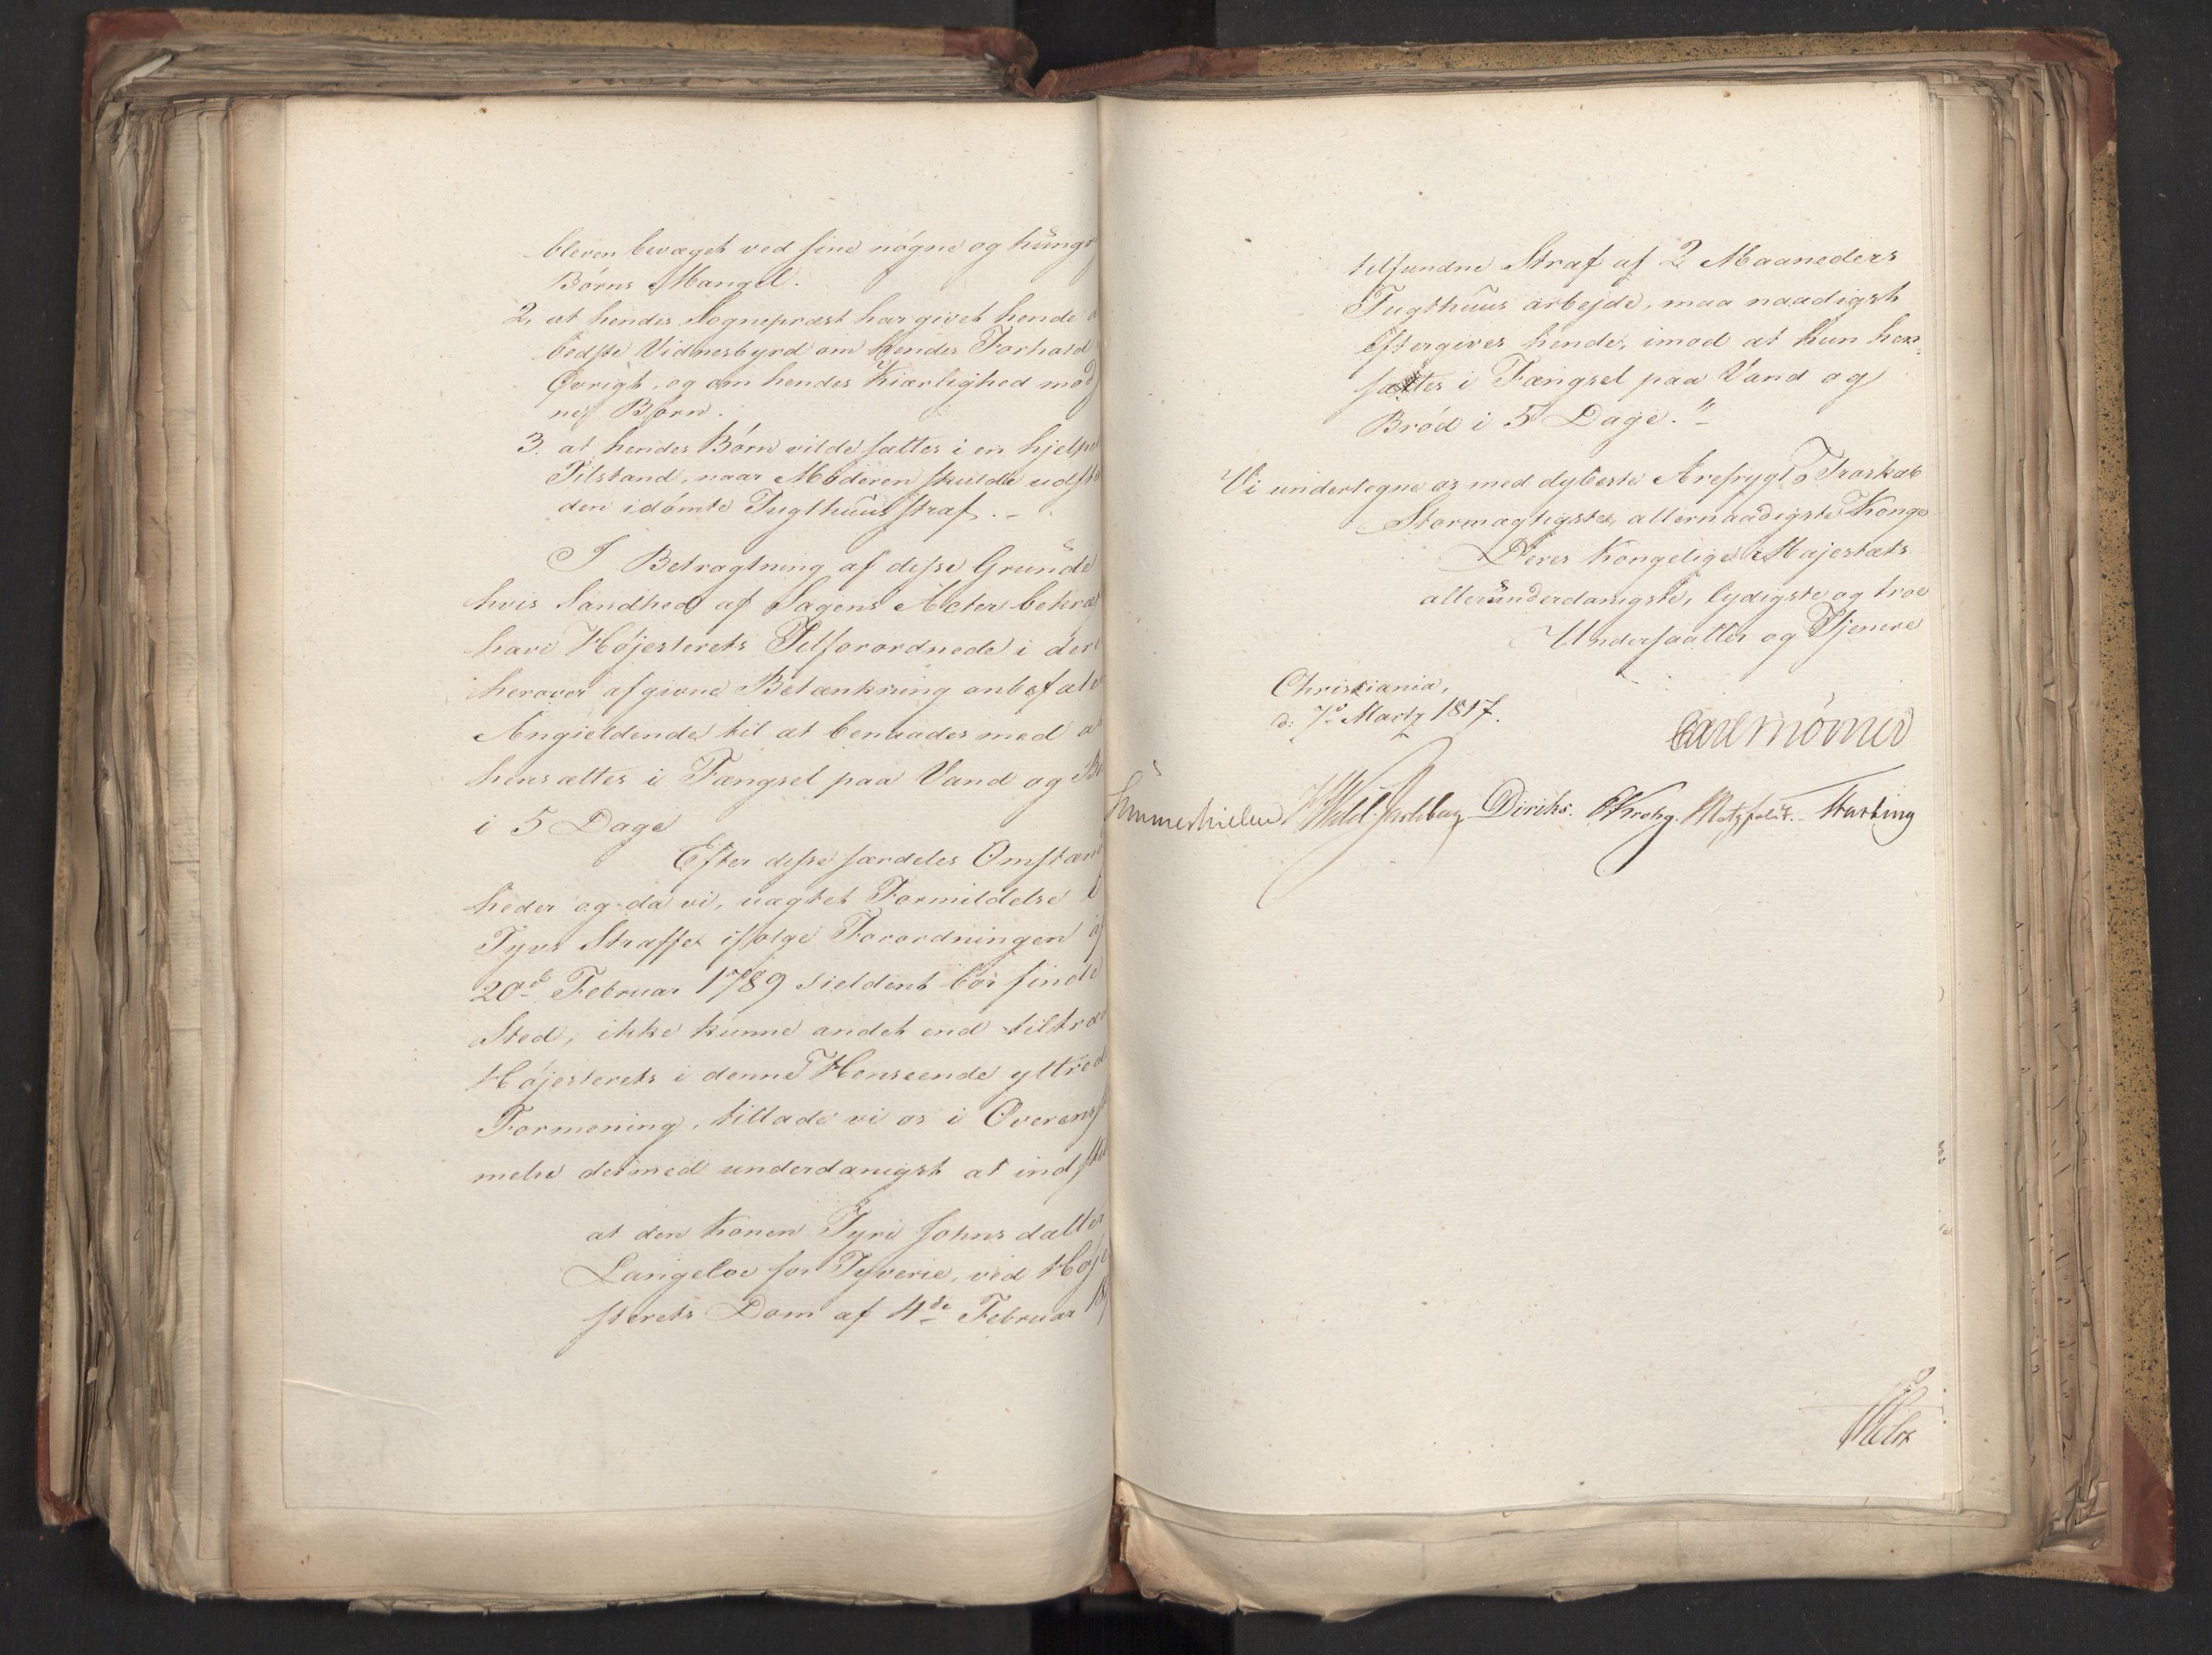 bleven bevæget ved sine nøgne og hungr
Børns Mangel.
2, at hendes Sognepræst har givet hende
bedste Vidnesbyrd om hendes Forhold
Øvrigt, og om hendes Kiærlighed mod
nes Børn.
3. at hendes Børn vilde sættes i en hjelpe
Tilstand, naar Moderen skulde udst
den idømte Tugthuus straf. -
I Betragtning af disse Grunde
hvis Sandhed af Sagens Acter bekræf
have Højesterets Tilforordnede i der
herover afgivne Betænkning anbefalet
Angieldende til at benaades med a
hensættes i Fængsel paa Vand og Br
i 5 Dage
Efter disse særdeles Omstæn
heder og da vi, uagtet Formildelse
Tyvs Straffe ifølge Forordningen af
20de Februar 1789 sieldent bør finde
Sted, ikke kunne andet end tiltræ
Højesterets i denne Henseende yttred
Formening, tillade vi os i Overenss
melse dermed underdanigst at indstil
at den Konen Tyri Johns datter
Langeloe for Tyverie, ved Høje
sterets Dom af 4de Februar 18
tilfundne Straf af 2 Maaneders
Tugthuus arbejde, maa naadigst
eftergives hende, imod at hun hen-
sættes i Fængsel paa Vand og
Brød i 5 Dage."
Vi undertegne os med dybeste Ærefrygt og Troskab
Stormægtigste, allernaadigste Konge
Deres Kongelige Majestæts
allerunderdanigste, lydigste og troe
Undersaatter og Tjenere
Christiania,
d: 7de Martz 1817.
Carl Mörner
Sommerhielm Wedel Jarlsberg Diriks. CKrohg. Motzfeldt. Hartvig